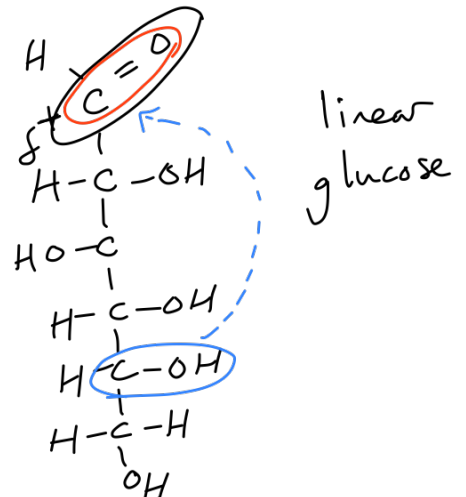 H
C = O
δ+
H-C-OH
HO-C
H-C-OH
H-C-OH
H-C-H
OH
linear
glucose